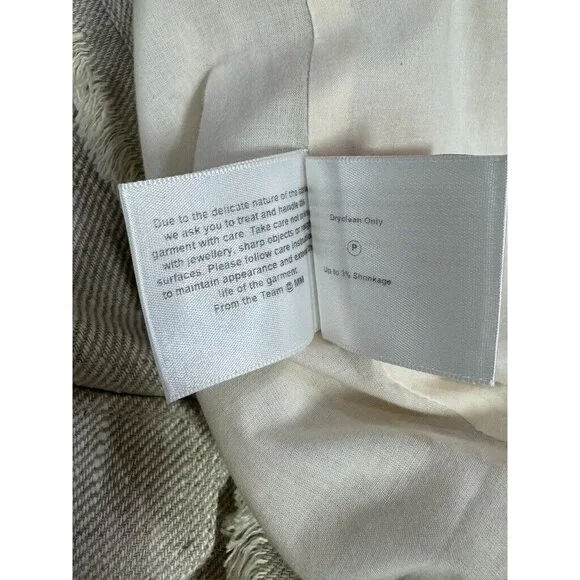 Due to the delicate nature of the
we ask you to treat and handle
garment with care. Take care not
with jewellery, sharp objects or
surfaces. Please follow care
to maintain appearance and
life of the garment.
From the Team @ MM
Dryclean Only
P
Up to 3% Shrinkage